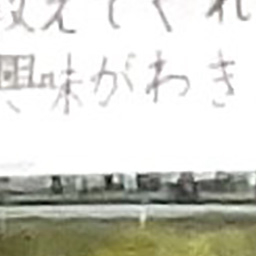 教えてくれ
興味がわき